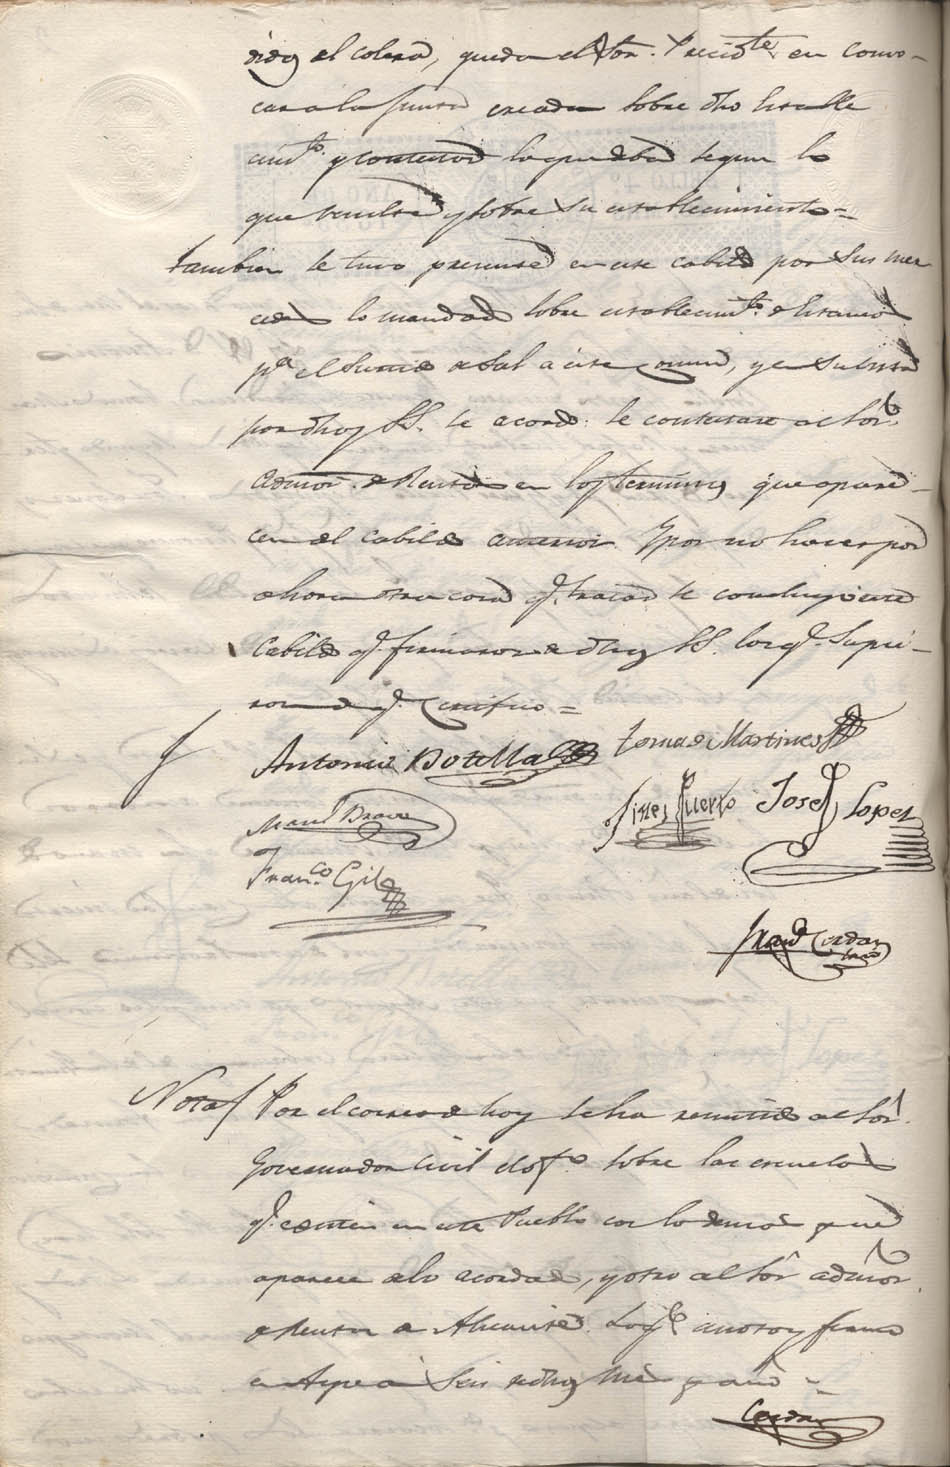 el colera, queda el Sor. Precidte en convo-
car a la Junta creada sobre dho Estable
cimto. y contextar lo que deba segun lo
que resulte y sobre su establecimiento=
Tambien se tuvo presente en este cabildo por Sus mer
cedes lo mandado sobre establecimto. de Estanco
pa. el Surtido de Sal a este Comun, y en su vista
por dhos SS. se acordó: se contextase al Sor.
Admor. de Rentas en los terminos que apare-
cen del cabildo anterior. Y por no haver por
ahora otra cosa q. tratar se concluyó este
Cabildo q. firmaron de dhos SS. los q. Supie-
ron de q. Certifico=
Antonio Botella
Tomas Martines
Manl. Bravo
Gines Puerto
Josef Lopez
Franco. Gil
Frando. Cerdan
Nota/ Por el correo de hoy se ha remitido al Sor.
Governador Civil ofo. sobre las escuelas
q. existen en este Pueblo con lo demas que
aparece de lo acordado, y otro al Sor. admor.
de Rentas de Alicante. Lo q. anoto y firmo
en Aspe á Seis de dhos Mes y año=
Cerdan